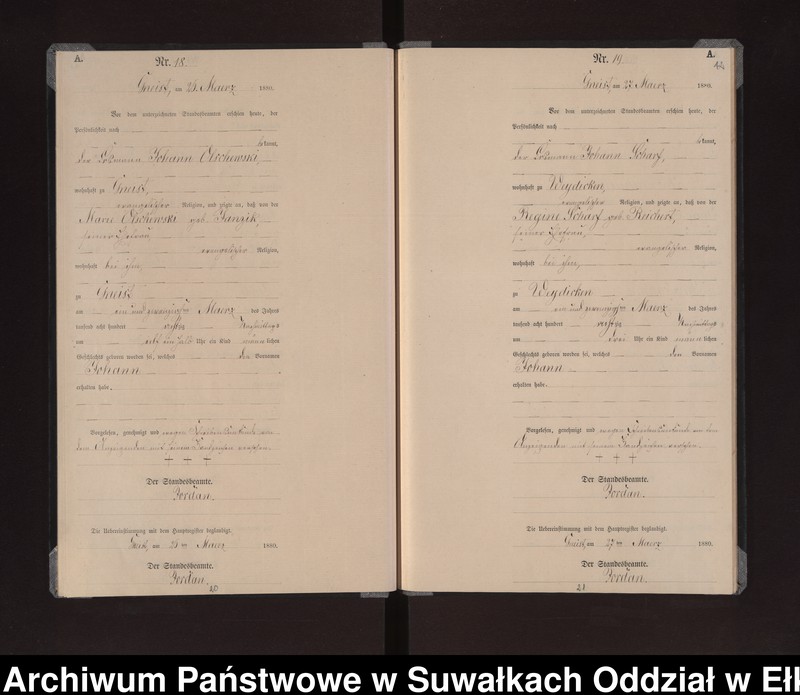 A.
Nr. 18.
Gneist, am 25. Maerz 1880.
Vor dem unterzeichneten Standesbeamten erschien heute, der
Persönlichkeit nach
bekannt,
der Losmann Johann Olschewski,
wohnhaft zu Gneist,
evangelischer Religion, und zeigte an, daß von der
Marie Olschewski geb.
seiner Ehefrau
evangelischer Religion,
wohnhaft bei ihm,
zu Gneist
am ein und zwanzigsten Maerz des Jahres
tausend acht hundert achtzig Nachmittags
um acht ein halb Uhr ein Kind männlichen
Geschlechts geboren worden sei, welches den Vornamen
Johann
erhalten habe.
Vorgelesen, genehmigt und wegen Schreibensunkunde von
dem Anzeigenden mit seinem Handzeichen versehen.
+ + +
Der Standesbeamte.
Jordan.
Die Uebereinstimmung mit dem Hauptregister beglaubigt.
Gneist, am 25ten Maerz 1880.
Der Standesbeamte.
Jordan.
20
A.
42
Nr. 19
Gneist, am 27. Maerz 1880.
Vor dem unterzeichneten Standesbeamten erschien heute, der
Persönlichkeit nach
bekannt,
der Losmann Johann Scharf,
wohnhaft zu Weydicken,
evangelischer Religion, und zeigte an, daß von der
Regine Scharf geb.
seiner Ehefrau,
evangelischer Religion,
wohnhaft bei ihm,
zu Weydicken
am und zwanzigsten Maerz des Jahres
tausend acht hundert achtzig Nachmittags
um Uhr ein Kind männlichen
Geschlechts geboren worden sei, welches den Vornamen
Johann
erhalten habe.
Vorgelesen, genehmigt und wegen Schreibensunkunde von dem
Anzeigenden mit seinem Handzeichen versehen.
+ + +
Der Standesbeamte.
Jordan.
Die Uebereinstimmung mit dem Hauptregister beglaubigt.
Gneist, am 27ten Maerz 1880.
Der Standesbeamte.
Jordan.
21
Archiwum Państwowe w Suwałkach Oddział w Ełk